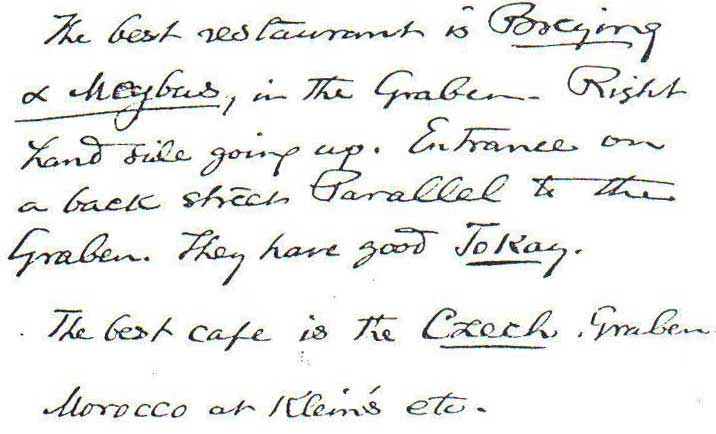 The best restaurant is Breying
& Meybus, in the Graben - Right
hand side going up. Entrance on
a back street Parallel to the
Graben. They have good Tokay.
The best cafe is the Czech. Graben
Morocco at Klein's etc.